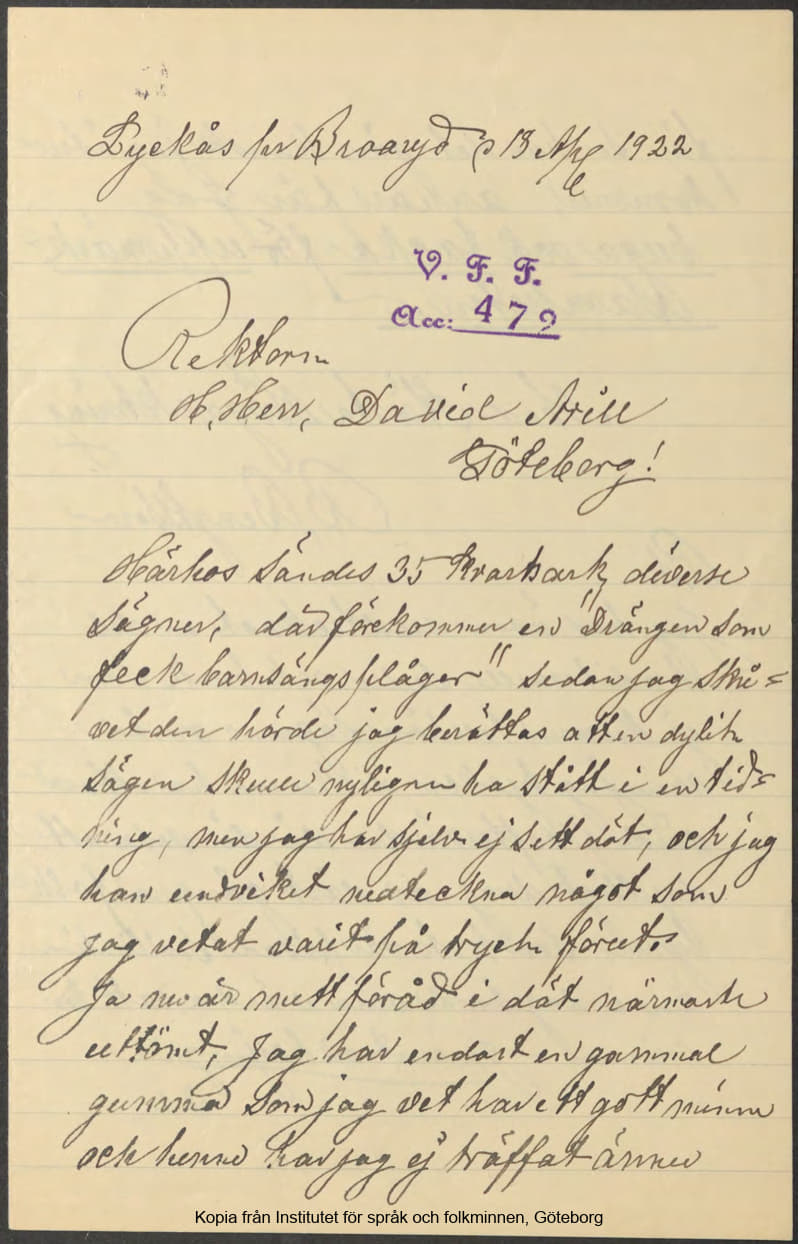 Lyckås pr Broaryd d 13 Apl 1922
V. F. F.
Acc: 472
Rektorn
H. Herr, David Arill
Göteborg!
Härhos sändes 35 kvartsark, diverse
sägner, där förekommer en "Drängen som
feck barnsängsplågor" sedan jag skri=
vet den hörde jag berättas att en dylik
sägen skulle nyligen ha stått i en tid=
ning, men jag har sjelv ej sett dät, och jag
har undviket nedteckna något som
jag vetat varit på tryck förut.
Ja nu är mitt föråd i dät närmaste
uttömt, Jag har endast en gammal
gumma som jag vet har ett gott minne
och henne har jag ej träffat ännu
Kopia från Institutet för språk och folkminnen, Göteborg